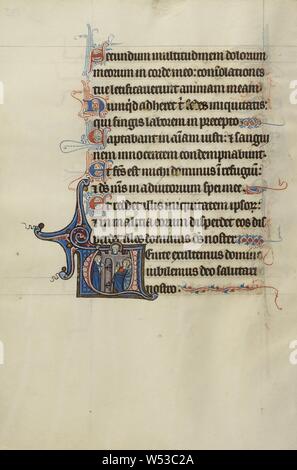 Secundum multitudinem dolorum
meorum in corde meo: consolationes
tue letificauerunt animam meam
Nunqd adheret t sedes iniquitatis:
qui fingis laborem in precepto
Captabunt in aīam iusti: et sangui
nem innocentem condempnabunt.
Et fcs est michi dominus i refugiū:
et deus ms in adiutorium spei mee
Et reddet illis iniquitatem ipsor:
et in malicia eorum disperdet eos dis
perdet illos dominus deus noster
Uenite exultemus domino
iubilemus deo salutari
nostro.
alamy
Image ID: W53C2A
www.alamy.com